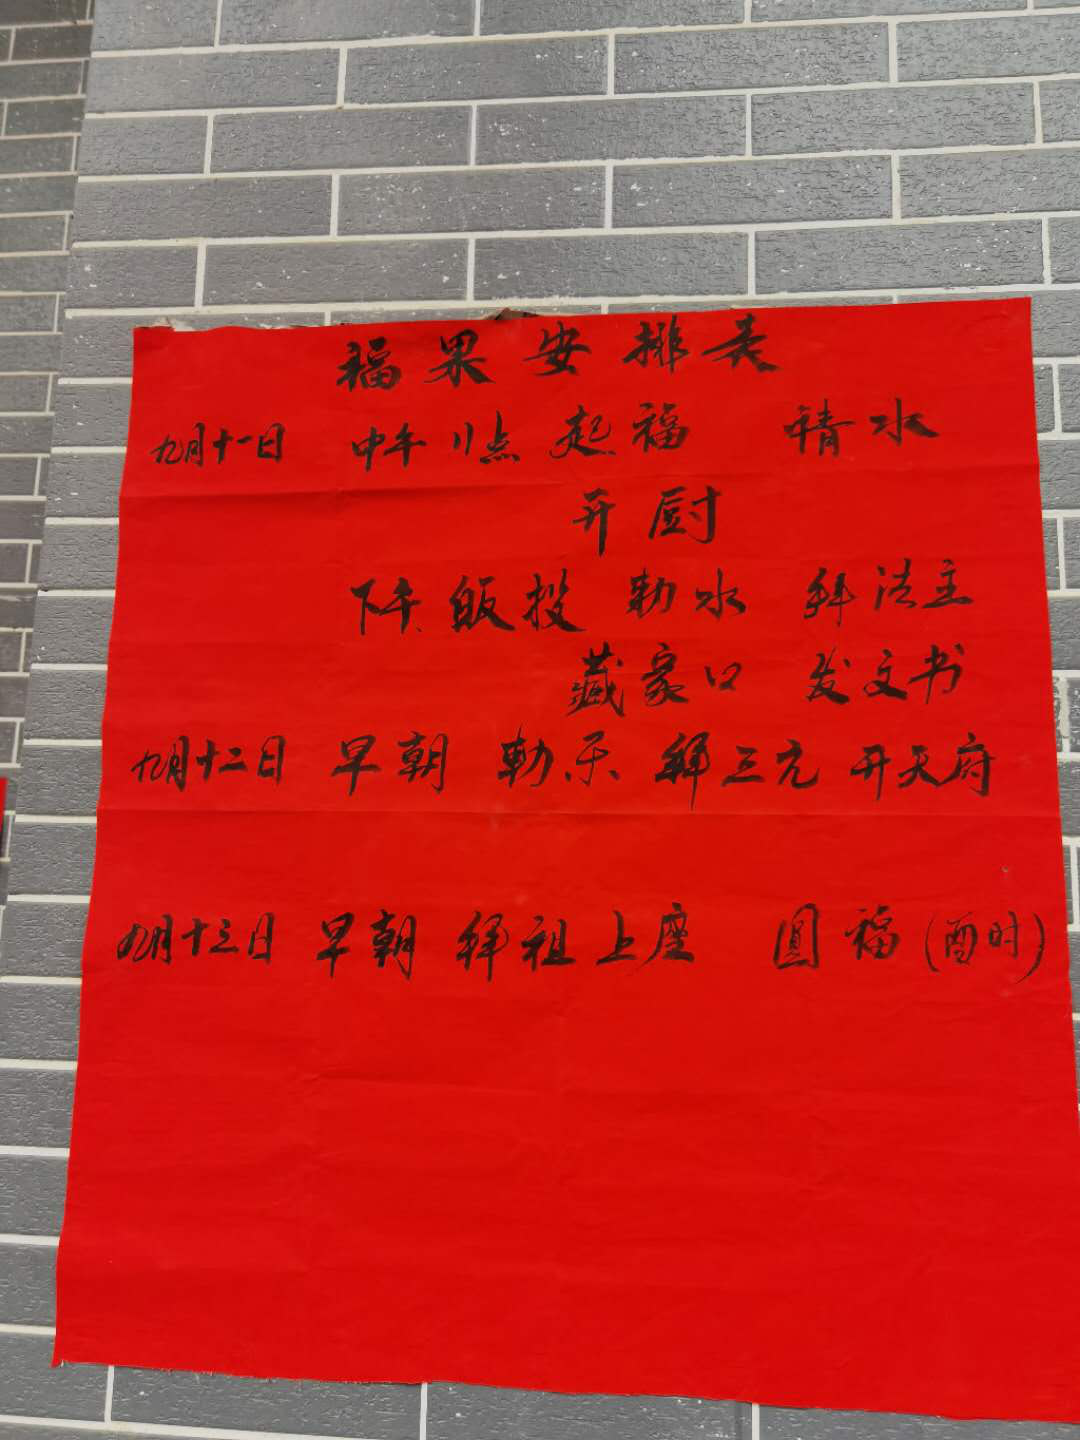 福果安排表
九月十一日 中午11点 起福 请水
开厨
下午 皈投 勅水 拜法主
藏家口 发文书
九月十二日 早朝 勅示 拜三元 开天府
九月十三日 早朝 拜祖上座 圆福(酉时)